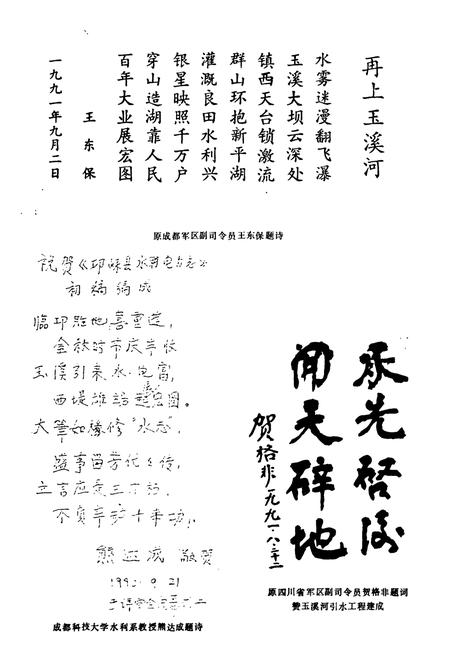 再上玉溪河
水雾迷漫翻飞瀑
玉溪大坝云深处
镇西天台锁激流
群山环抱新平湖
灌溉良田水利兴
银星映照千万户
穿山造湖靠人民
百年大业展宏图
王东保
一九九一年九月二日
原成都军区副司令员王东保题诗
祝贺《邛崃县水利电力志》
初稿编成
临邛胜地喜重
金秋时节庆丰收
玉溪引来水电富,
西堤雄 起宏图。
大笔如椽修"水志",
盛事留芳代代传,
立言应是三不朽,
不负辛劳十年功。
熊达成 敬贺
9.21
成都科技大学水利系教授熊达成题诗
承先启后
开天辟地
贺格非 一九九一.八.二十二
原四川省军区副司令员贺格非题词
赞玉溪河引水工程建成